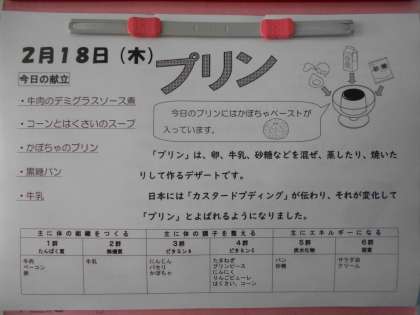 2月18日(木)
プリン
今日の献立
・牛肉のデミグラスソース煮
・コーンとはくさいのスープ
・かぼちゃのプリン
・黒糖パン
・牛乳
今日のプリンにはかぼちゃペーストが
入っています。
「プリン」は、卵、牛乳、砂糖などを混ぜ、蒸したり、焼いた
りして作るデザートです。
日本には「カスタードプディング」が伝わり、それが変化して
「プリン」とよばれるようになりました。
主に体の組織をつくる 主に体の調子を整える 主にエネルギーになる
1群 2群 3群 4群 5群 6群
たんぱく質 無機質 ビタミンA ビタミンC 炭水化物 脂質
牛肉 牛乳 にんじん たまねぎ パン サラダ油
ベーコン パセリ グリンピース 砂糖 クリーム
卵 かぼちゃ にんにく
りんごピューレ
はくさい、コーン